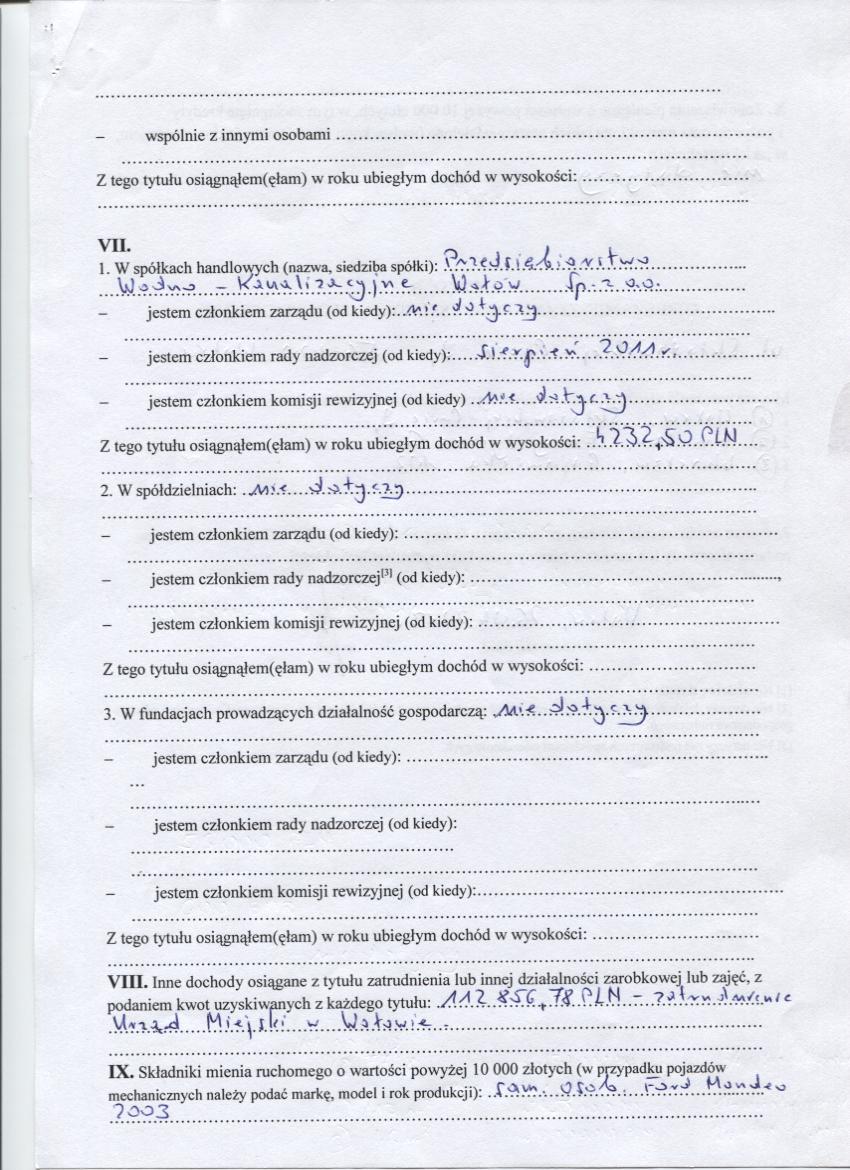 – wspólnie z innymi osobami
Z tego tytułu osiągnąłem(ęłam) w roku ubiegłym dochód w wysokości:
VII.
1. W spółkach handlowych (nazwa, siedziba spółki): Przedsiębiorstwo
Wodno – Kanalizacyjne Wołów Sp. z o.o.
– jestem członkiem zarządu (od kiedy): nie dotyczy
– jestem członkiem rady nadzorczej (od kiedy): sierpień 2011 r.
– jestem członkiem komisji rewizyjnej (od kiedy) nie dotyczy
Z tego tytułu osiągnąłem(ęłam) w roku ubiegłym dochód w wysokości: 4232,50 PLN
2. W spółdzielniach: nie dotyczy
– jestem członkiem zarządu (od kiedy):
– jestem członkiem rady nadzorczej[3] (od kiedy):
– jestem członkiem komisji rewizyjnej (od kiedy):
Z tego tytułu osiągnąłem(ęłam) w roku ubiegłym dochód w wysokości:
3. W fundacjach prowadzących działalność gospodarczą: nie dotyczy
– jestem członkiem zarządu (od kiedy):
...
– jestem członkiem rady nadzorczej (od kiedy):
– jestem członkiem komisji rewizyjnej (od kiedy):
Z tego tytułu osiągnąłem(ęłam) w roku ubiegłym dochód w wysokości:
VIII. Inne dochody osiągane z tytułu zatrudnienia lub innej działalności zarobkowej lub zajęć, z
podaniem kwot uzyskiwanych z każdego tytułu: 112 856,78 PLN – zatrudnienie
Urząd Miejski w Wołowie.
IX. Składniki mienia ruchomego o wartości powyżej 10 000 złotych (w przypadku pojazdów
mechanicznych należy podać markę, model i rok produkcji): sam. osob. Ford Mondeo
2003